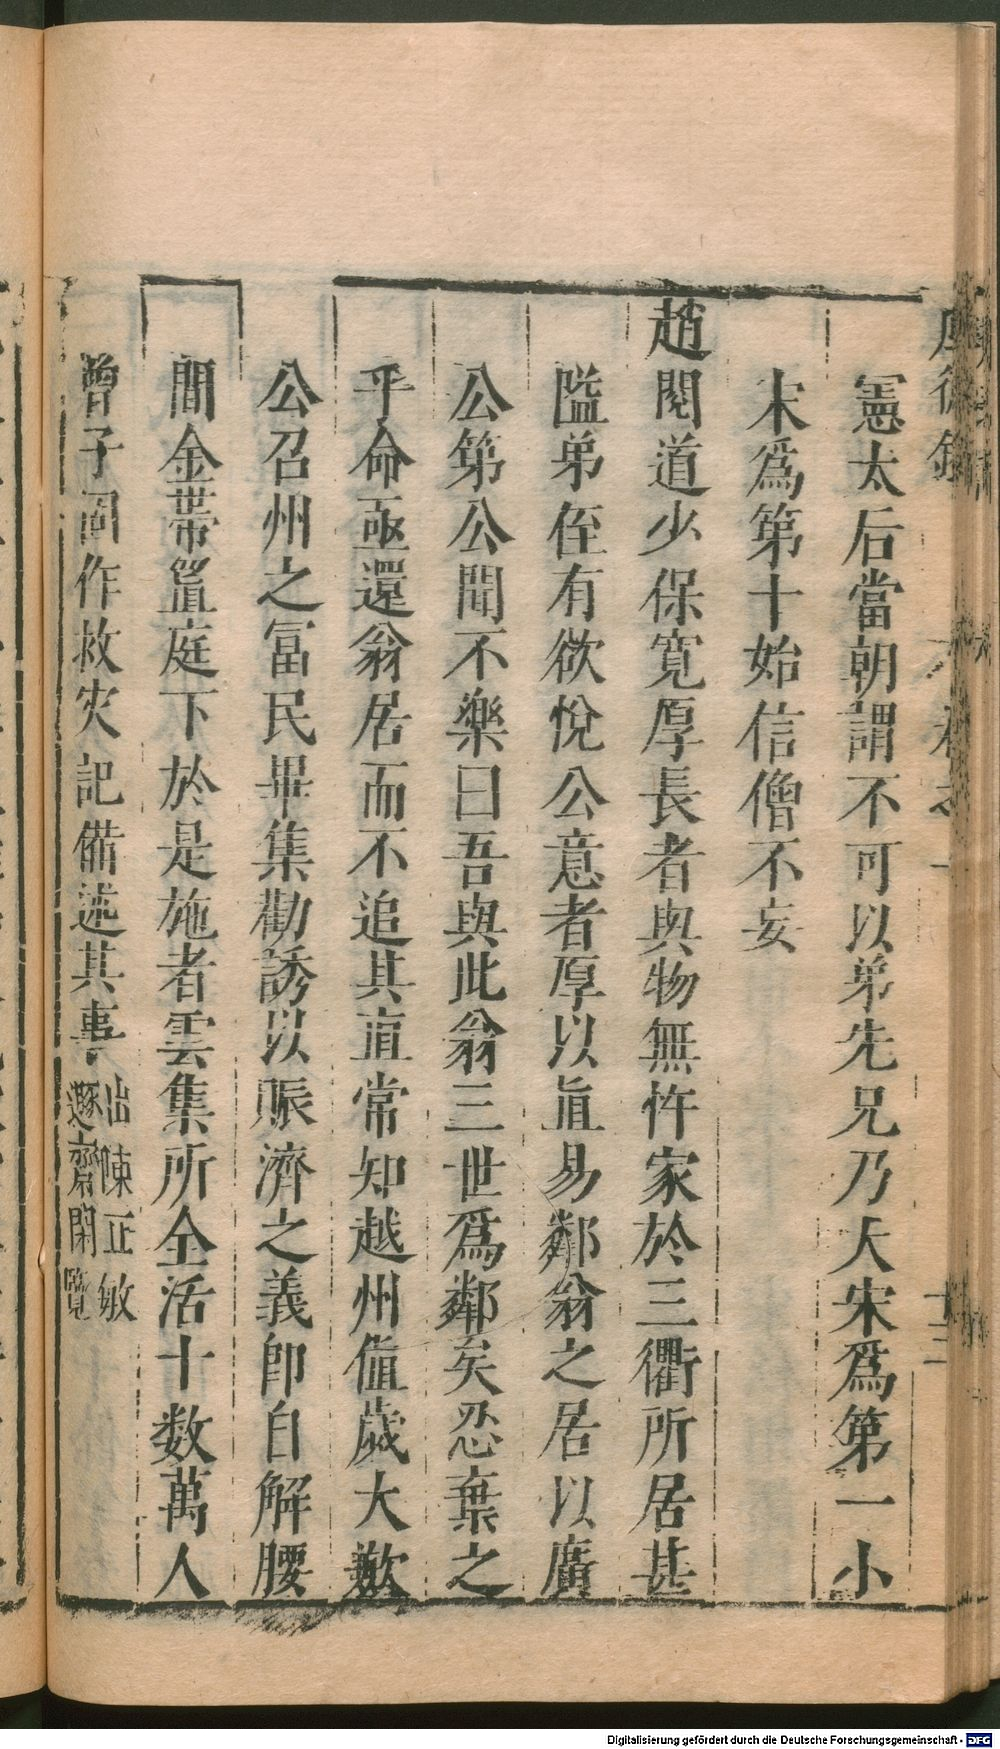 憲太后當朝謂不可以弟先兄乃大宋爲第一小
宋爲第十始信僧不妄
趙閱道少保寬厚長者與物無忤家於三衢所居甚
隘弟侄有欲悅公意者厚以直易鄰翁之居以廣
公第公聞不樂曰吾與此翁三世爲鄰矣忍棄之
乎命亟還翁居而不追其直常知越州値歲大歉
公召州之冨民畢集勸誘以賑濟之義即自解腰
間金帶置庭下於是施者雲集所全活十数萬人
曾子固作救灾記備述其事
出陳正敏
遯齋閑覽
Digitalisierung gefördert durch die Deutsche Forschungsgemeinschaft - DFG